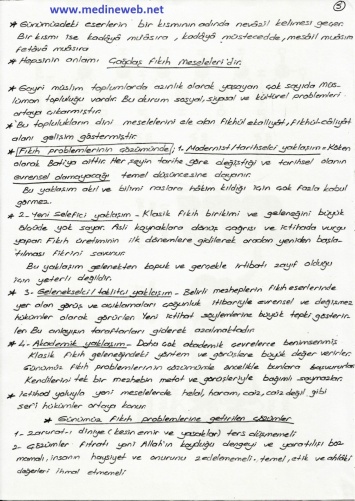 www.medineweb.net
5
* Günümüzdeki eserlerin bir kısmının adında nevâzil kelimesi geçer.
Bir kısmı ise kadâyâ muâsıra, kadâyâ müstecedde, mesâil muâsıra
fetâvâ muâsıra
* Hepsinin anlamı Çağdaş Fıkıh Meseleleri'dir.
* Gayri müslim toplumlarda azınlık olarak yaşayan çok sayıda Müs-
lüman topluluğu vardır. Bu durum sosyal, siyasal ve kültürel problemleri
ortaya çıkarmıştır.
* Bu toplulukların dini meselelerini ele alan Fıkhül ekalliyât, Fıkhül-câliyât
alanı gelişim göstermiştir.
* Fıkıh problemlerinin çözümünde; 1. Modernist/tarihselci yaklaşım - Köken
olarak Batı'ya aittir. Her şeyin tarihe göre değiştiği ve tarihsel olanın
evrensel olamayacağı temel düşüncesine dayanır.
Bu yaklaşım akıl ve bilimi naslara hâkim kıldığı için çok fazla kabul
görmez.
* 2- Yeni Selefici yaklaşım - Klasik Fıkıh birikimi ve geleneğini büyük
ölçüde yok sayar. Asli kaynaklara dönüş çağrısı ve ictihada vurgu
yapar. Fıkıh üretiminin ilk dönemlere gidilerek oradan yeniden başla-
tılması fikrini savunur.
Bu yaklaşım gelenekten kopuk ve gerçekle irtibatı zayıf olduğu
için yeterli değildir.
* 3- Gelenekselci/taklitci yaklaşım - Belirli mezheplerin Fıkıh eserlerinde
yer alan görüş ve açıklamaları çoğunluk itibariyle evrensel ve değişmez
hükümler olarak görürler. Yeni ictihat söylemlerine büyük tepki gösterir-
ler. Bu anlayışın taraftarları giderek azalmaktadır.
* 4- Akademik yaklaşım - Daha çok akademik çevrelerce benimsenmiş
Klasik Fıkıh geleneğindeki yöntem ve görüşlere büyük değer verirler.
Günümüz Fıkıh problemlerinin çözümünde öncelikle bunlara başvururlar.
Kendilerini tek bir mezhebin metot ve görüşleriyle bağımlı saymazlar.
* İctihad yoluyla yeni meselelerde helal, haram, caiz, caiz değil gibi
şer'i hükümler ortaya konur.
* Günümüz Fıkıh problemlerine getirilen çözümler
1- zarurat-ı diniye (kesin emir ve yasaklar) ters düşmemeli
2- çözümler fıtratı yeni Allah'ın koyduğu dengeyi ve yaratılışı boz
mamalı, insanın haysiyet ve onurunu zedelememeli. temel, etik ve ahlâki
değerleri ihmal etmemeli